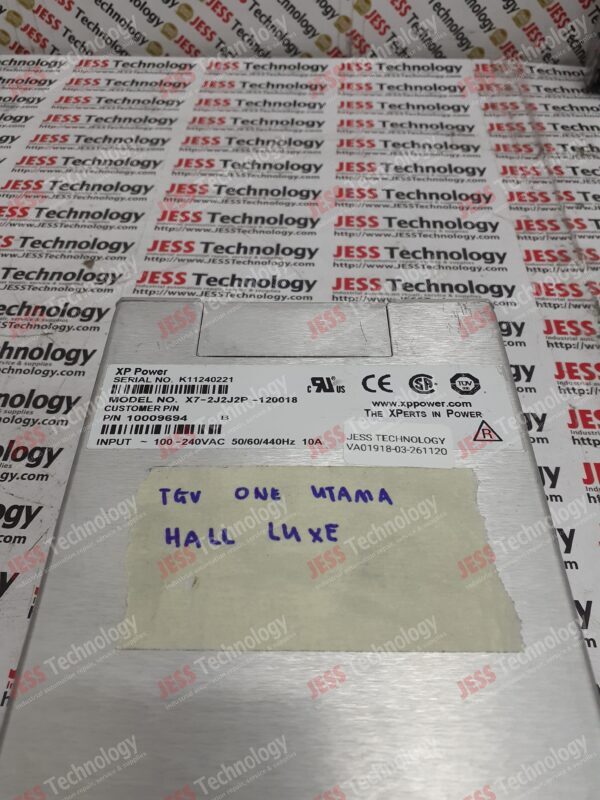 XP Power
SERIAL NO. K11240221
MODEL NO. X7-2J2J2P -120018
CUSTOMER P/N
P/N 10009694 B
INPUT ~ 100-240VAC 50/60/440Hz 10A
www.xppower.com
THE XPERTS IN POWER
JESS TECHNOLOGY
VA01918-03-261120
TGV ONE UTAMA
HALL LUXE
JESS Technology
http://www.JESSTechnology.com
JESS Technology
industrial automation repair, service & supplies